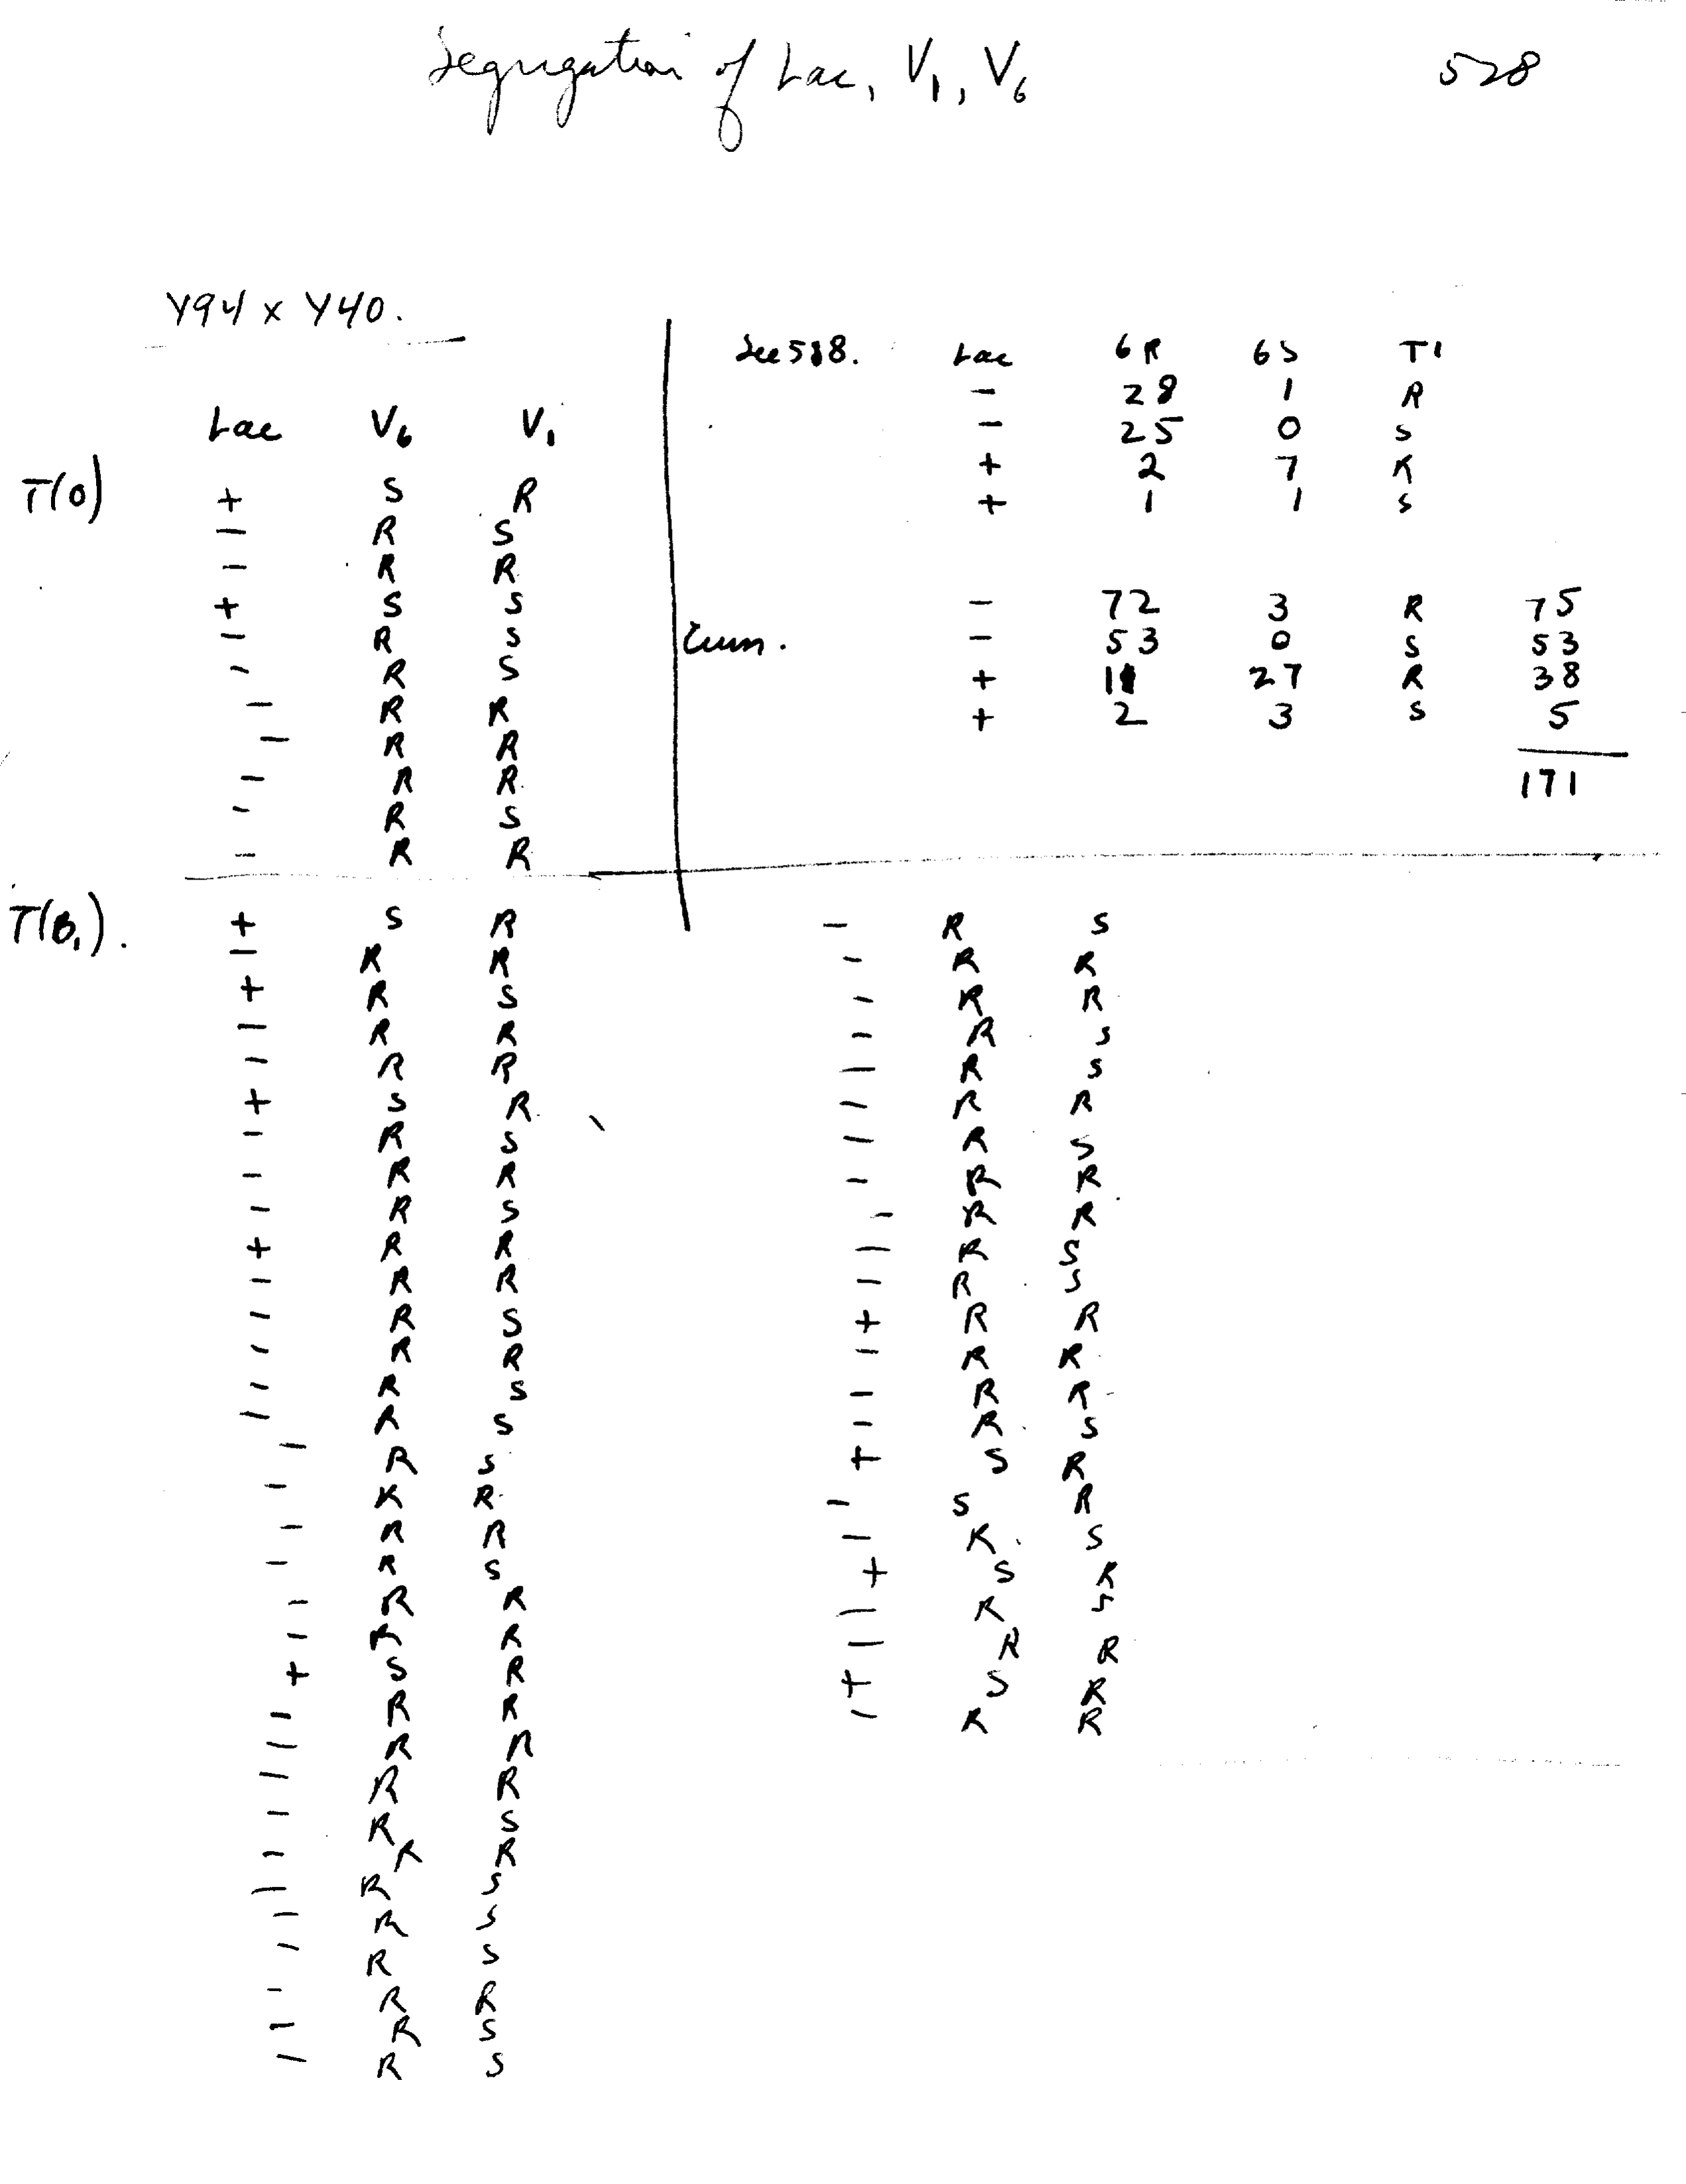 Segregation of Lac, V1, V6 528
Y94 x Y40.
Lac V6 V1
T(0) + S R
− R S
− R R
+ S S
− R S
− R S
− R R
− R R
− R R
− R S
− R R
See 518. Lac 6R 6S T1
− 28 1 R
− 25 0 S
+ 2 7 R
+ 1 1 S
− 72 3 R 75
Cum. − 53 0 S 53
+ 11 27 R 38
+ 2 3 S 5
171
T(B1). + S R
− R R
+ R S
− R R
− R R
+ S R
− R S
− R R
− R S
+ R R
− R R
− R S
− R R
− R S
− R S
− R S
− R R
− R R
− R S
− R R
− R R
+ S R
− R R
− R R
− R R
− R S
− R R
− R S
− R S
− R S
− R R
− R S
− R S
− R S
− R R
− R R
− R S
− R S
− R R
− R S
− R R
− R R
− R S
− R S
+ R R
− R R
− R R
− R S
+ S R
− S R
− R S
+ S R
− R S
− R R
+ S R
− R R